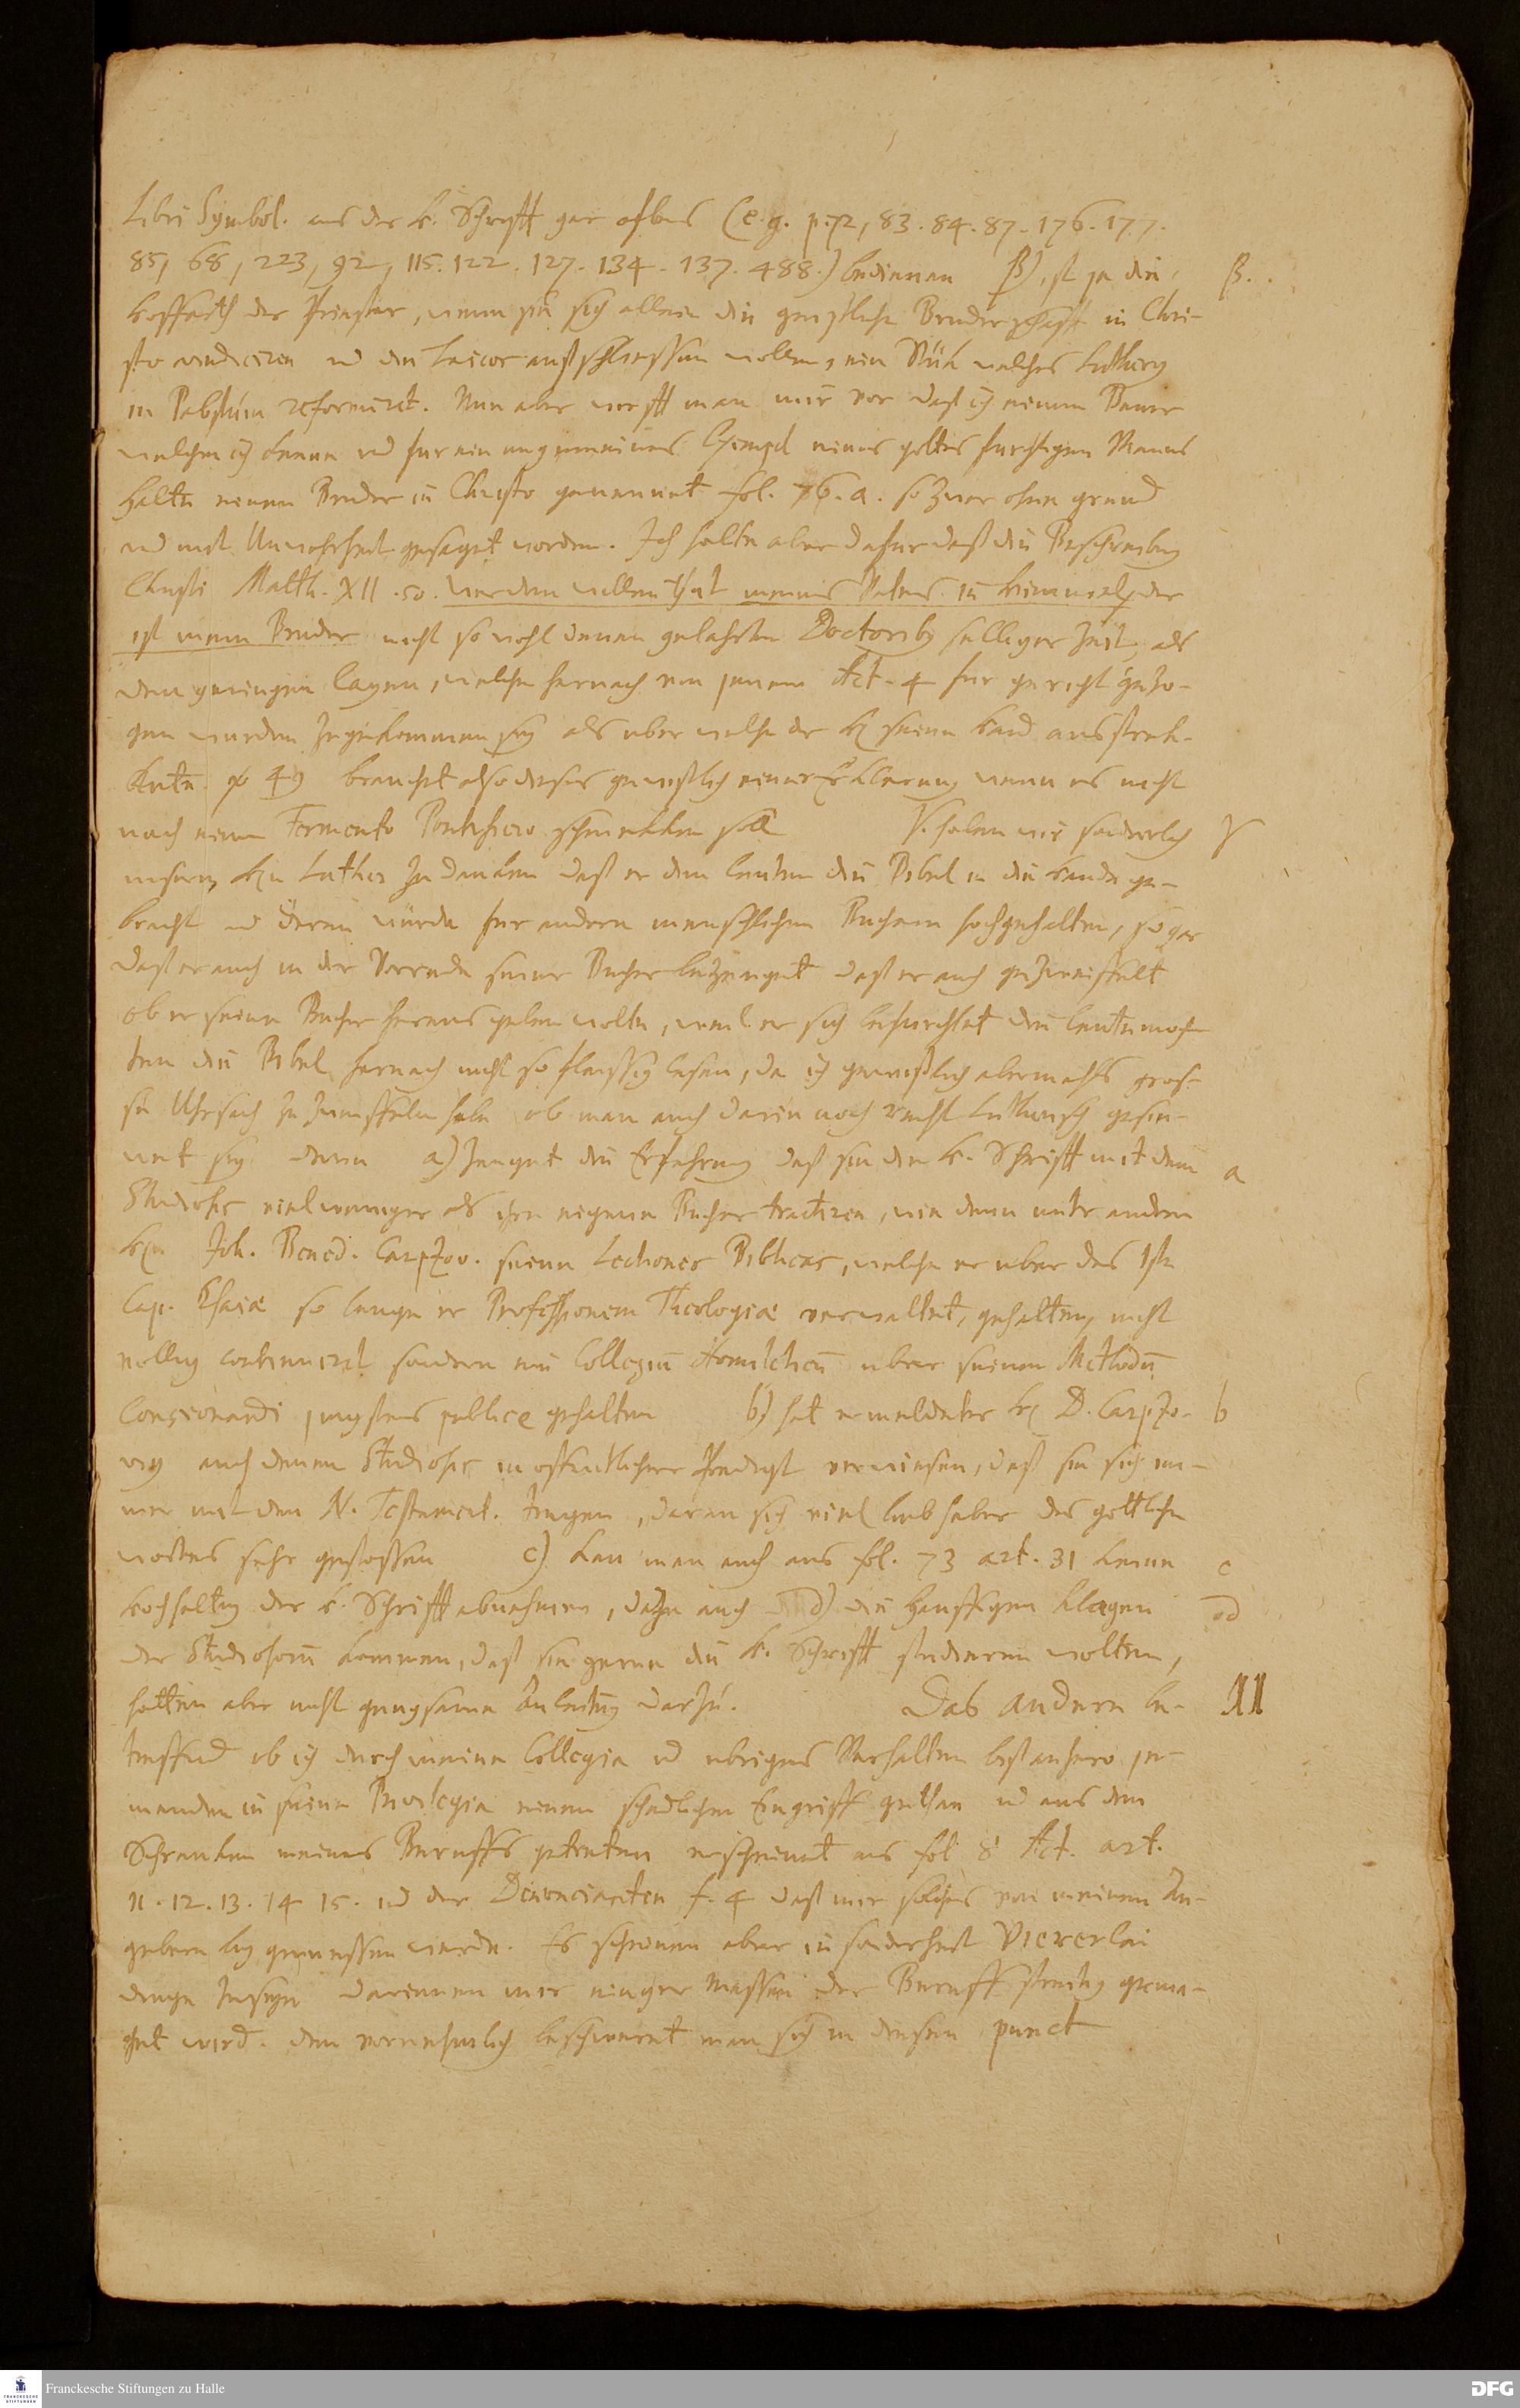 Libri Symbol. aus der H. Schrifft gar offters (e.g. p. 72, 83. 84. 87. 176. 177.
85, 68, 223, 92, 115. 122. 127. 134. 137. 488.) bedienen β) ist ja die β.
Hoffarth der Priester, wenn sie sich allein die geistliche Bruderschafft in Chri-
sto vindiciren ud die Laicos außschliessen wollen, ein Stük welches Lutherus
in Pabstum reformiret. Nun aber wirfft man mir vor daß ich einen Bauer
welchen ich kenne ud fur ein ungemeines Exempel eines gottesfurchtigen Manns
halte einen Bruder in Christo genennet fol. 76. a. so zwar ohne grund
ud mit Unwahrheit gesaget worden. Ich halte aber dafur daß die Beschreibung
Christi Matth. XII. 50. wer den willen thut meines Vaters in Himmel, der
ist mein Bruder nicht so wohl denen gelehrten Doctoribus selbiger Zeit, als
den geringen Layen, welche hernach von jenen Act. 4 fur gericht gezo-
gen wurden zugekommen sey als uber welche der H. seine Hand ausstrek-
kete 49 brauchet also dieses gewißlich einer Erklerung wenn es nicht
nach einem Fermento Pontificio schmekken soll γ. haben wir sonderlich γ
unserm Hn Luther zu danken daß er den leuten die Bibel in die Hande ge-
bracht ud deren würde fur andern menschlichen Buchern hochgehalten, so gar
daß er auch in der Vorrede seiner Bucher bezeuget daß er auch gezweiffelt
ob er seine Bucher heraus geben wolte, weil er sich befurchtet die leute moch-
ten die Bibel hernach nicht so fleissig lesen, da ich gewißlich abermahls gros-
se Uhrsach zu zweiffeln habe ob man auch darin noch recht Lutherisch gesin-
net sey denn a) zeuget die Erfahrung daß sie die H. Schrifft mit den a
Studiosis viel weniger als ihre eigene Bucher tractiren, wie denn unter andern
Hn Joh. Bened. Carpzov. seine Lectiones Biblicas, welche er uber das 1ste
Cap. Esaiæ so lange er Professionem Theologiæ verwaltet, gehalten, nicht
vollig continuiret sondern ein Collegiū Homileticū uber seinen Methodū
Concionandi jungstens publice gehalten b) hat ermeldeter H. D. Carpzo- b
vius auch denen Studiosis in offentlicher Predigt verwiesen, daß sie sich im-
mer mit den N. Testament. trugen, daran sich viel liebhaber des gottlichen
wortes sehr gestossen c) kan man auch aus fol. 73 art. 31 keine c
Hochhaltung der H. Schrifft abnehmen, dazu auch d) die hauffigen Klagen d
der Studiosorū kommen, daß sie gerne die H. Schrifft studieren wolten,
hatten aber nicht gnugsame Anleitung darzu. Das andere be- II
treffend ob ich durch meine Collegia ud ubriges Verhalten bißanhero je-
manden in seine Privilegia einen schedlichen Eingriff gethan ud aus den
Schranken meines Beruffs getreten erscheinet aus fol 8 Act. art.
11. 12. 13. 14 15. ud der Denunciaten f. 4 daß mir solches von meinen An-
gebern bey gemessen werde. Es scheinen aber in sonderheit Viererlei
dinge zu seyn darinnen mir einiger massen der Beruff streitig gema-
chet wird. denn vornehmlich beschweret man sich in diesem punct